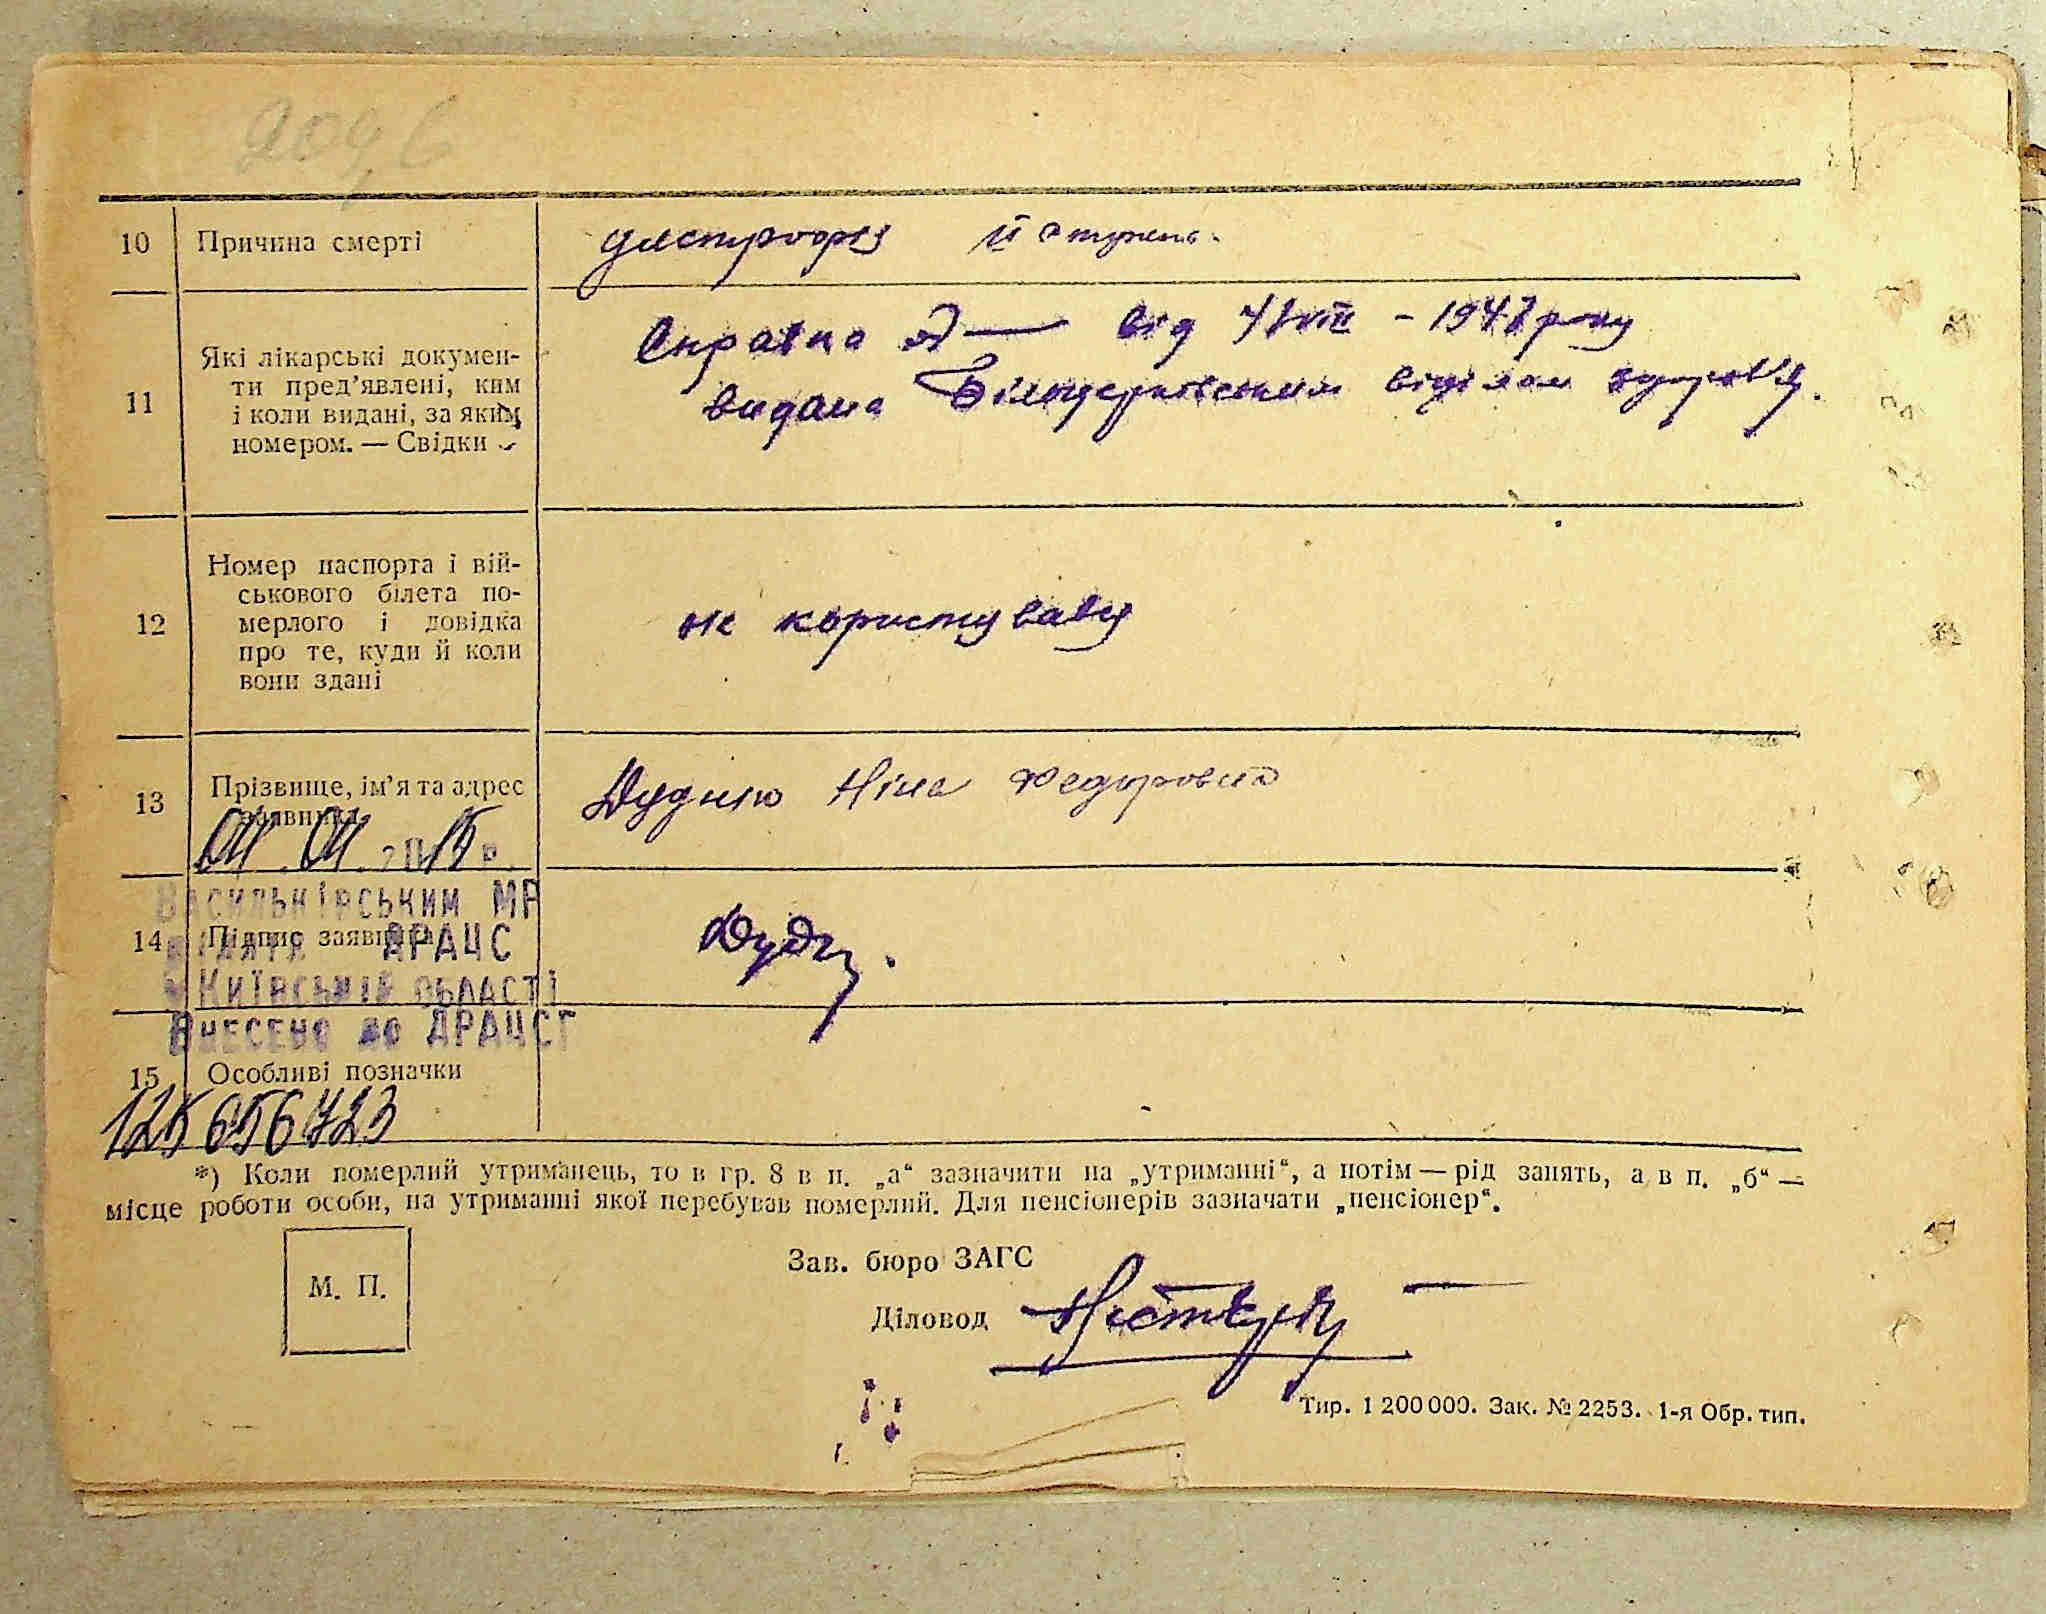 10 Причина смерті дистрофія ІІ ступень.
11 Які лікарські докумен-
ти пред’явлені, ким
і коли видані, за яким
номером. — Свідки
Справка № — від VІІІ – 1947 року
видана Білоцерківським відділом здоров'я.
12 Номер паспорта і вій-
ськового білета по-
мерлого і довідка
про те, куди й коли
вони здані
не користувався
13 Прізвище, ім’я та адрес
заявника
Ніна Федоровна
2015 р.
Васильківським МР
14 Підпис заявника
ДРАЦС
Київській області
Внесено до ДРАЦСГ
15 Особливі позначки
*) Коли померлий утриманець, то в гр. 8 в п. „а“ зазначити на „утриманні“, а потім — рід занять, а в п. „б“ —
місце роботи особи, на утриманні якої перебував померлий. Для пенсіонерів зазначати „пенсіонер“.
М. П.
Зав. бюро ЗАГС
Діловод
Тир. 1 200 000. Зак. № 2253. 1-я Обр. тип.